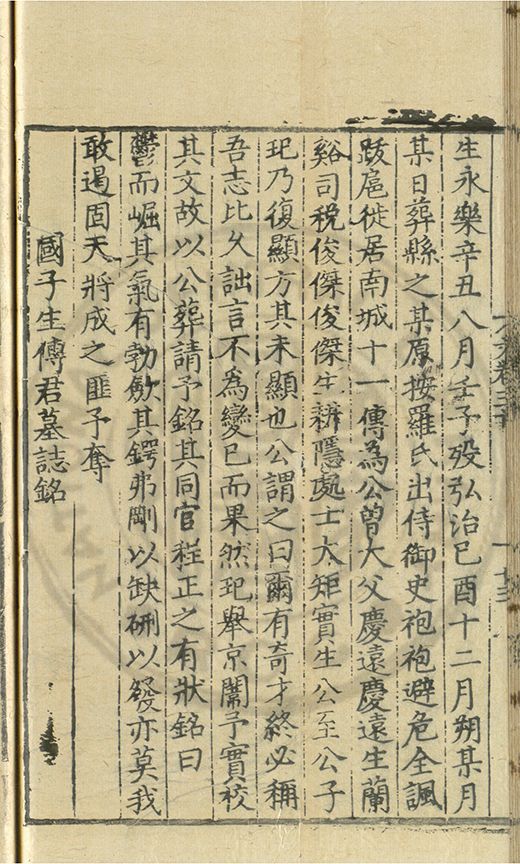 生永樂辛丑八月壬子歿弘治己酉十二月朔某月
某日葬縣之某原按羅氏出侍御史袍袍避危全諷
跋扈徙居南城十一傳為公曾大父慶遠慶遠生蘭
谿司稅俊傑俊傑生耕隱處士大矩實生公至公子
玘乃復顯方其未顯也公謂之曰爾有奇才終必稱
吾志比久詘言不為變已而果然玘舉京闈予實校
其文故以公葬請予銘其同官程正之有狀銘曰
鬱而崛其氣有勃歛其鍔弗剛以缺硎以發亦莫我
敢遏固天將成之匪予奪
國子生傅君墓誌銘